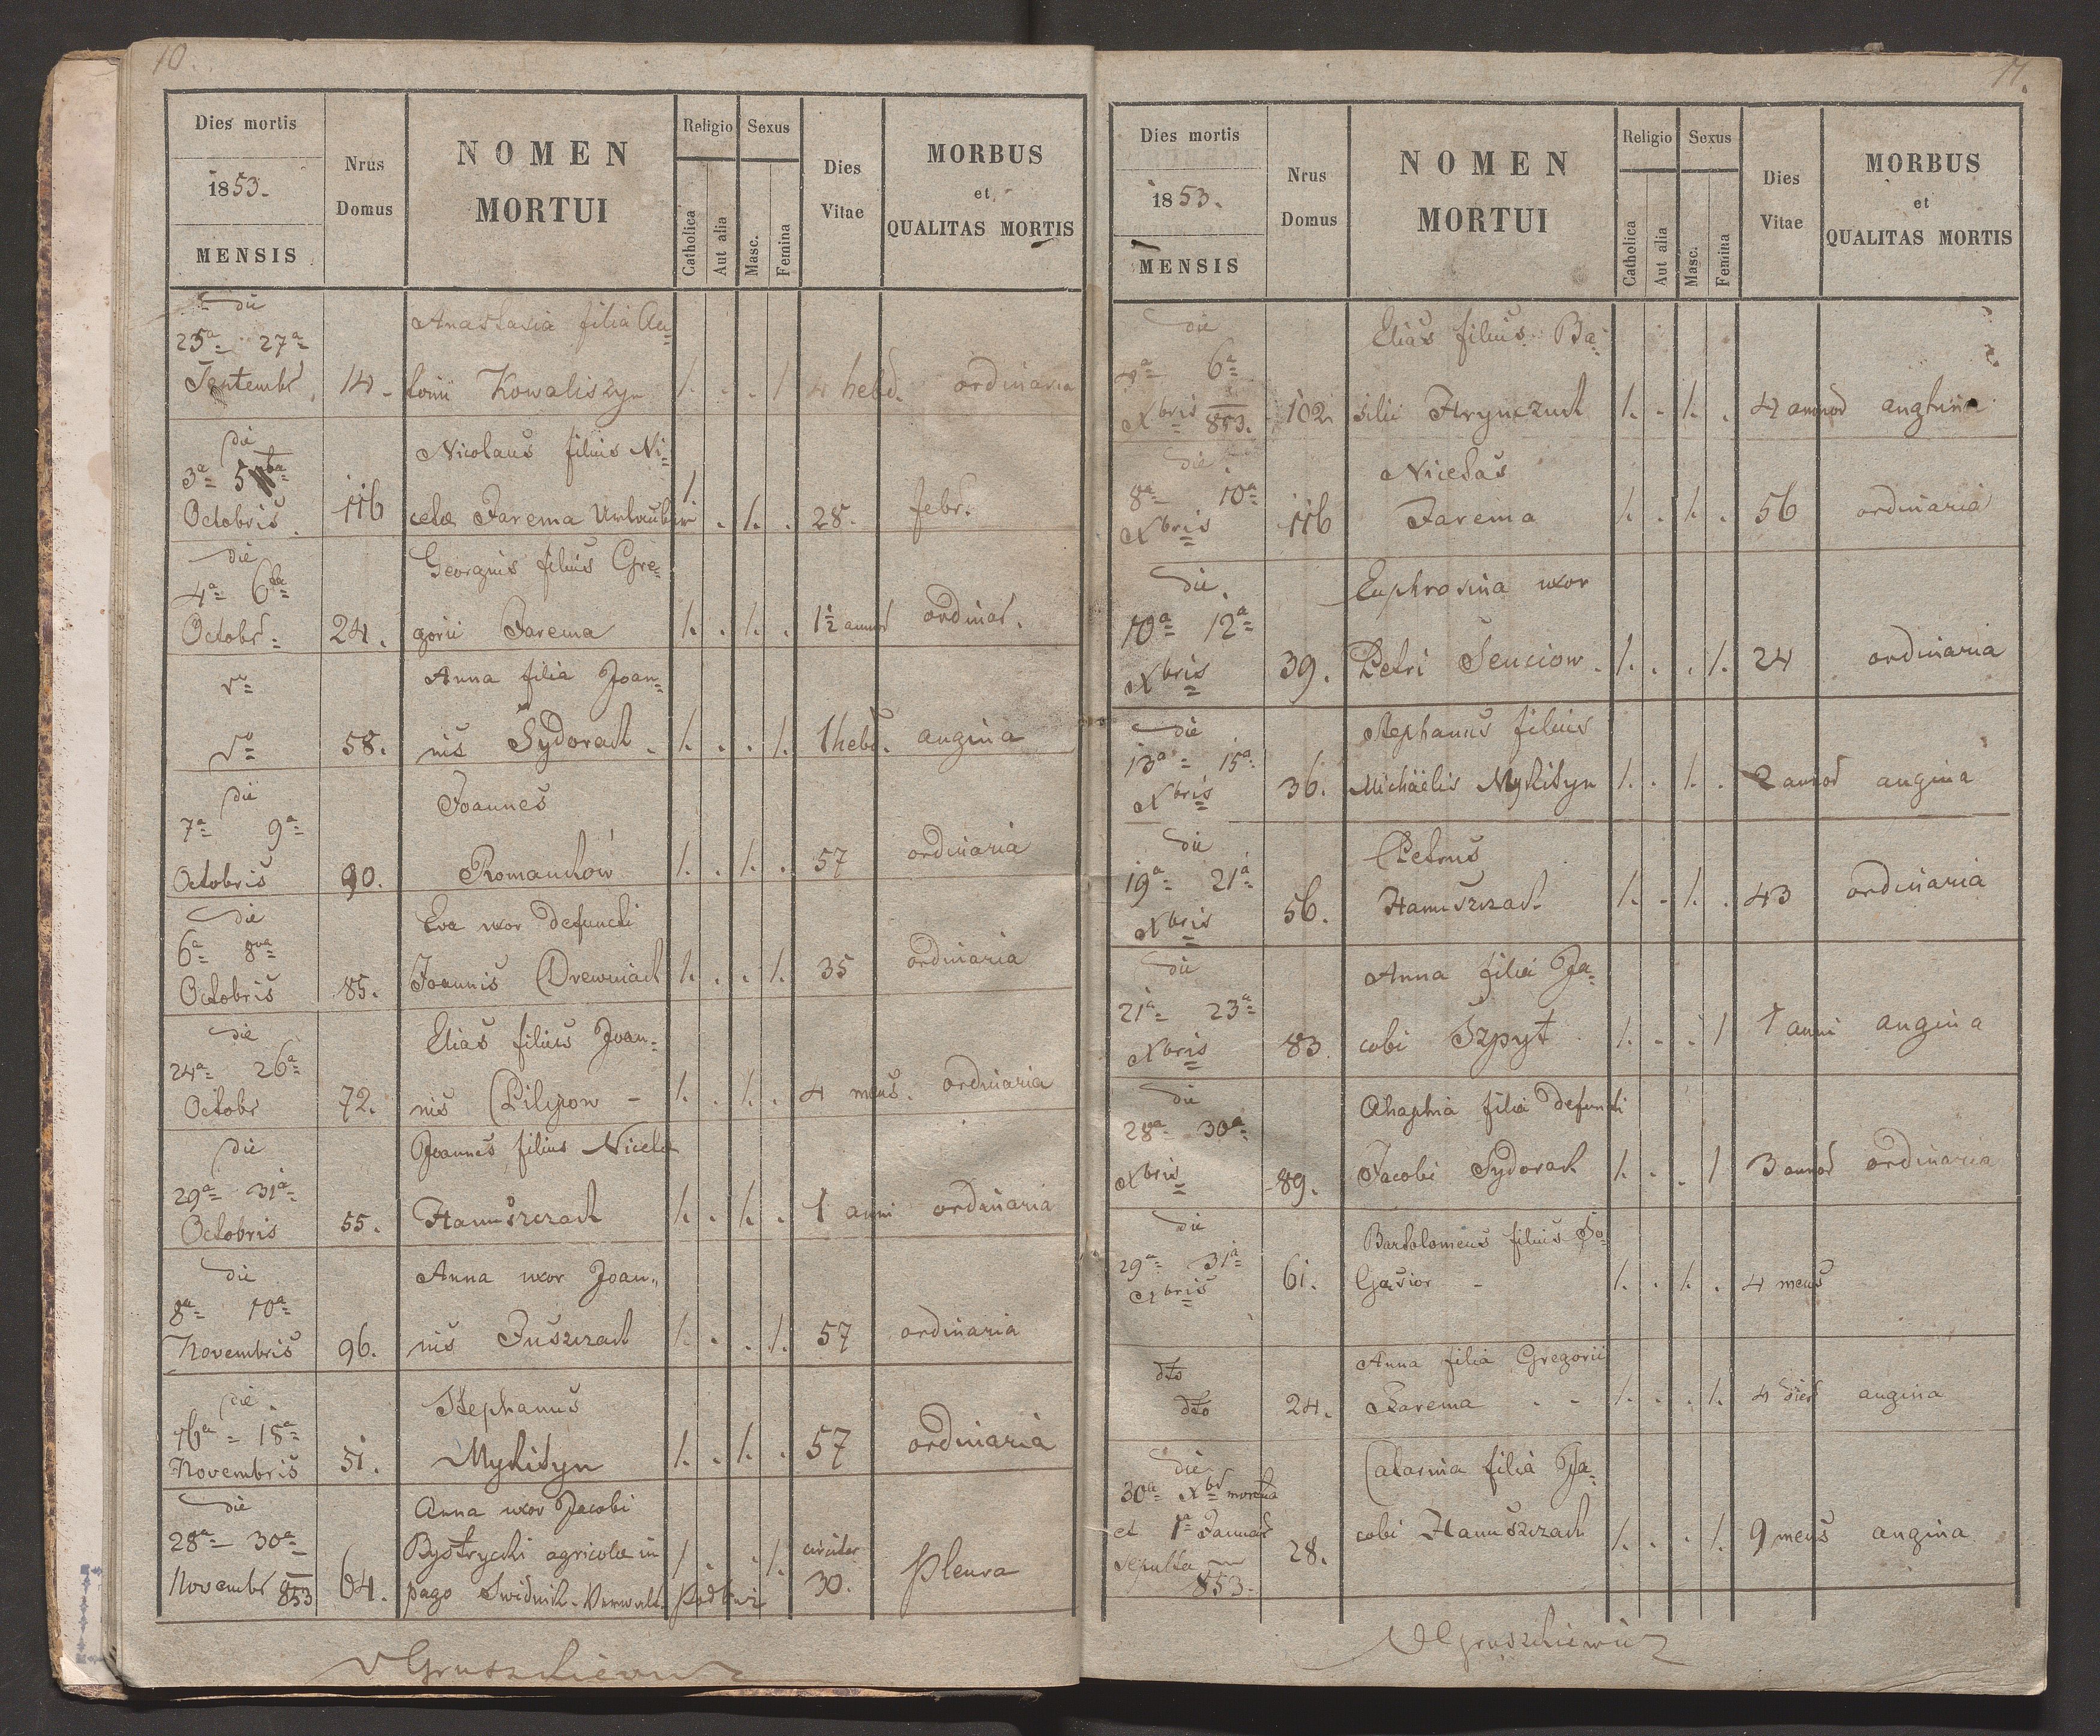 10.
Dies mortis
1853.
MENSIS
Nrus
Domus
NOMEN
MORTUI
Religio
Catholica
Aut alia
Sexus
Masc.
Femina
Dies
Vitae
MORBUS
et
QUALITAS MORTIS
die
25ª 27ª
Septembr
14
Anastasia filia An=
tonii Kowaliszyn
1. . . 1
4 hebd.
ordinaria
die
3ª 5
Octobris
116
Nicolaus filius Ni=
cetæ Jarema Urlauber
1. . 1. .
28.
febr.
die
4ª 6ta
Octobr
24.
Georgius filius Gre=
gorii Jarema
1. . 1. .
1½ annor
ordinar.
58.
Anna filia Joan=
nis Sydorack
1. . . 1.
1 hebd.
angina
die
7ª 9ª
Octobris
90.
Joannes
Romanchów
1. . 1. .
57
ordinaria
die
6ª 8va
Octobris
85.
Eva uxor defuncti
Joannis Drewniack
1. . . 1.
35
ordinaria
die
24ª 26ª
Octobr
72.
Elias filius Joan=
nis Pilipow
1. . 1. .
4 mens.
ordinaria
die
29ª 31ª
Octobris
55.
Joannes filius Nicetæ
Hanuszczack
1. . 1. .
1 anni
ordinaria
die
8ª 10ª
Novembris
96.
Anna uxor Joan=
nis Juszczack
1. . . 1.
57
ordinaria
die
16ª 18ª
Novembris
51.
Stephanus
Mykityn
1. . 1. .
57
ordinaria
die
28ª 30ª
Novembr 853
64.
Anna uxor Jacobi
Bystrycki agricolæ in
pago Swidnik
1. . . 1.
circiter
30.
Pleura
Gruszkiewicz
11.
Dies mortis
1853.
MENSIS
Nrus
Domus
NOMEN
MORTUI
Religio
Catholica
Aut alia
Sexus
Masc.
Femina
Dies
Vitae
MORBUS
et
QUALITAS MORTIS
die
4ª 6ª
Xbris 853.
102.
Elias filius Ba=
silii Hrynczuck
1. . 1. .
4 annor
anghina
die
8ª 10ª
Xbris
116
Nicetas
Jarema
1. . 1. .
56
ordinaria
die
10ª 12ª
Xbris
39.
Euphrosina uxor
Petri Senciow.
1. . . 1.
24
ordinaria
die
13ª 15ª
Xbris
36.
Stephanus filius
Michaëlis Mykityn
1. . 1. .
2 annor
angina
die
19ª 21ª
Xbris
56.
Petrus
Hanuszczack
1. . 1. .
43
ordinaria
die
21ª 23ª
Xbris
83
Anna filia Ja=
cobi Szpyt
1. . . 1
1 anni
angina
die
28ª 30ª
Xbris
89.
Ahaphia filia defuncti
Jacobi Sydorack
1. . . 1
3 annor
ordinaria
die
29ª 31ª
Xbris
61.
Bartolomeus filius Jo=
Gasior
1. . 1. .
4 mens
dto
dto
24.
Anna filia Gregorii
Jarema
1. . . 1.
4 dier
angina
die
30ª Xbr mortua
et 1ª Januar
sepulta
853.
28.
Catarina filia Ja=
cobi Hanuszczack
1. . . 1.
9 mens
angina
Gruszkiewicz